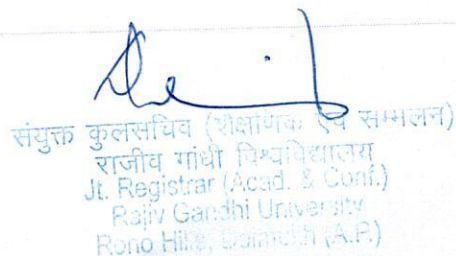 संयुक्त कुलसचिव (शैक्षणिक एवं सम्मलन)
राजीव गांधी विश्वविद्यालय
Jt. Registrar (Acad. & Conf.)
Rajiv Gandhi University
Rono Hills, Doimukh (A.P.)